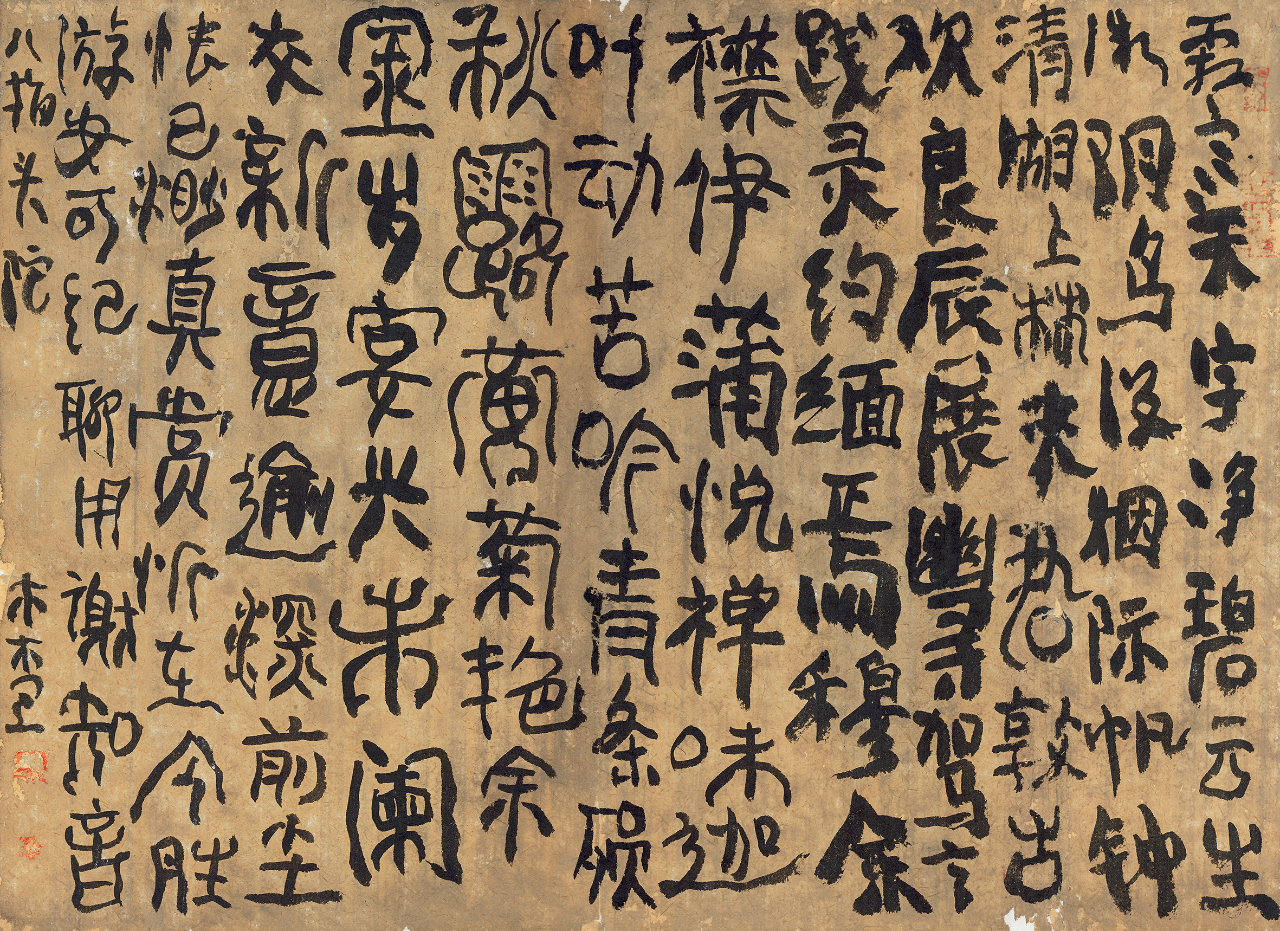 天宇净碧云生
微阴鸟没烟际帆钟
清湖上林来君敦古
欢良辰展幽寻驾言
践灵约缅焉穆余
襟伊蒲悦禅味迦
叶动苦吟青条磒
秋露黄菊艳余
金岁宴兴未阑
交新意逾深前尘
怅已邈真赏忻在今胜
游安可纪聊用谢知音
八指头陀 木木